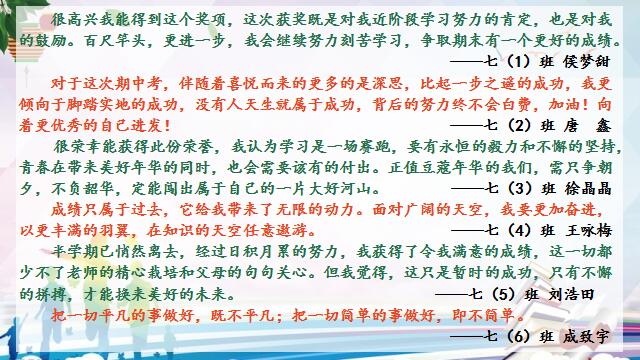 很高兴我能得到这个奖项，这次获奖既是对我近阶段学习努力的肯定，也是对我
的鼓励。百尺竿头，更进一步，我会继续努力刻苦学习，争取期末有一个更好的成绩。
——七（1）班 侯梦甜
对于这次期中考，伴随着喜悦而来的更多的是深思，比起一步之遥的成功，我更
倾向于脚踏实地的成功，没有人天生就属于成功，背后的努力终不会白费，加油！向
着更优秀的自己进发！ ——七（2）班 唐 鑫
很荣幸能获得此份荣誉，我认为学习是一场赛跑，要有永恒的毅力和不懈的坚持，
青春在带来美好年华的同时，也会需要该有的付出。正值豆蔻年华的我们，需只争朝
夕，不负韶华，定能闯出属于自己的一片大好河山。 ——七（3）班 徐晶晶
成绩只属于过去，它给我带来了无限的动力。面对广阔的天空，我要更加奋进，
以更丰满的羽翼，在知识的天空任意遨游。 ——七（4）班 王咏梅
半学期已悄然离去，经过日积月累的努力，我获得了令我满意的成绩，这一切都
少不了老师的精心栽培和父母的句句关心。但我觉得，这只是暂时的成功，只有不懈
的拼搏，才能换来美好的未来。 ——七（5）班 刘浩田
把一切平凡的事做好，既不平凡；把一切简单的事做好，即不简单。
——七（6）班 成致宇